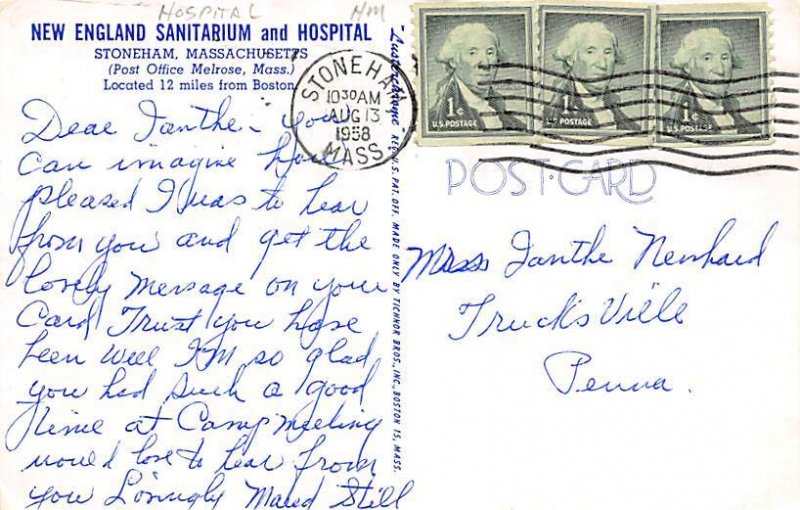 HOSPITAL HM
NEW ENGLAND SANITARIUM and HOSPITAL
STONEHAM, MASSACHUSETTS
(Post Office Melrose, Mass.)
Located 12 miles from Boston
Dear Ianthe - You
Can imagine how
pleased I was to hear
from you and get the
lovely message on your
Card Trust you have
been well I'm so glad
you had such a good
time at Camp meeting
would love to hear from
you Lovingly Maud Still
STONEHAM
10 30 AM
AUG 13
1958
MASS.
"Lusterchrome" REG. U.S. PAT. OFF. MADE ONLY BY TICHNOR BROS., INC., BOSTON 15, MASS.
1¢ WASHINGTON U.S. POSTAGE
1¢ WASHINGTON U.S. POSTAGE
1¢ U.S. POSTAGE
POST-CARD
Miss Ianthe Newhard
Trucksville
Penna.